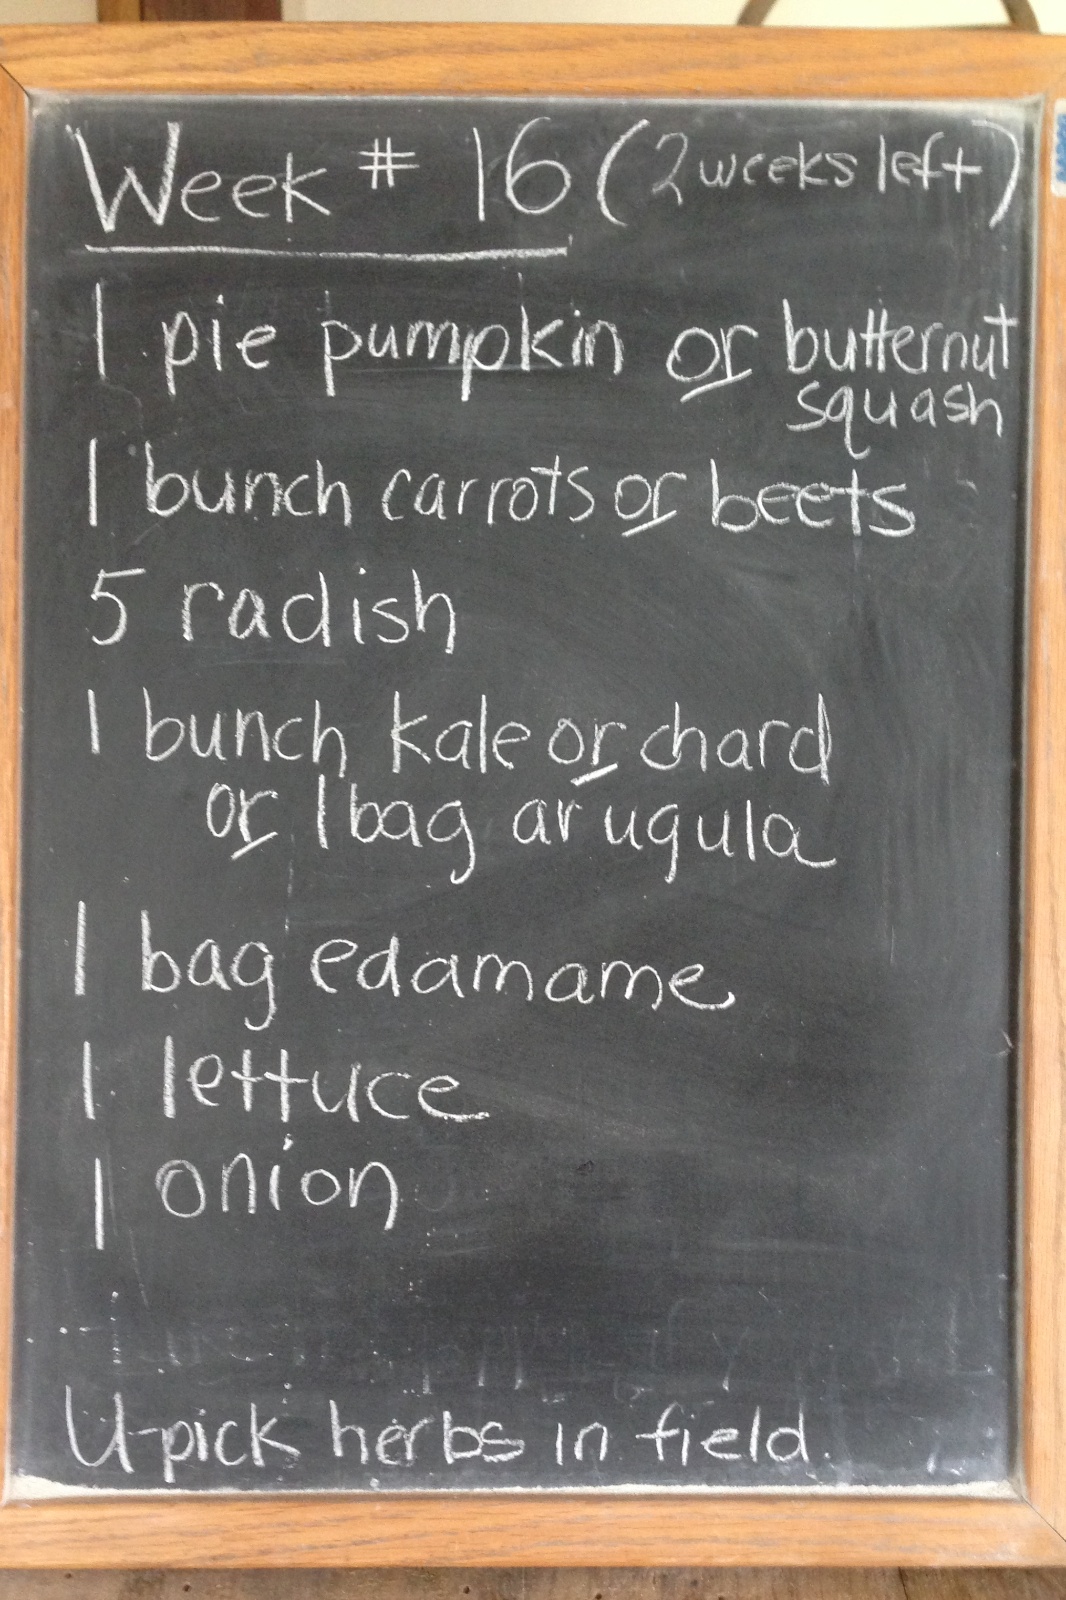 Week # 16 (2 weeks left)
1 pie pumpkin or butternut
squash
1 bunch carrots or beets
5 radish
1 bunch kale or chard
or 1 bag arugula
1 bag edamame
1 lettuce
1 onion
U-pick herbs in field.